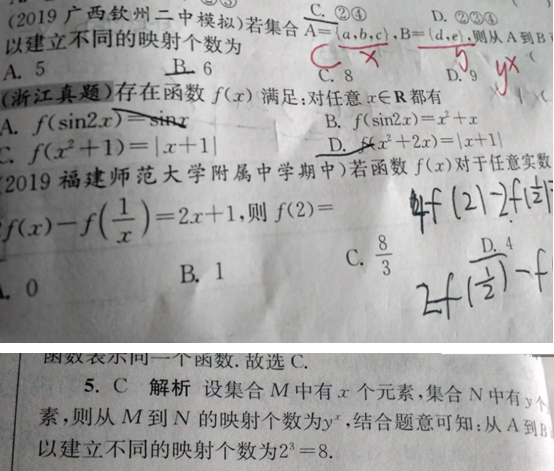 C. ②④ D. ②③④
(2019广西钦州二中模拟)若集合A={a,b,c},B={d,e},则从A到B
以建立不同的映射个数为
C x y y^x
A. 5 B. 6 C. 8 D. 9
(浙江真题)存在函数 f(x) 满足:对任意 x∈R 都有
A. f(sin2x)=sinx B. f(sin2x)=x²+x
C. f(x²+1)=|x+1| D. f(x²+2x)=|x+1|
(2019福建师范大学附属中学期中)若函数 f(x)对于任意实数
f(x)-f(1/x)=2x+1,则 f(2)=
4f(2)-2f(1/2)
A. 0 B. 1 C. 8/3 D. 4
2f(1/2)-f
函数表示同一个函数.故选 C.
5. C 解析 设集合 M 中有 x 个元素,集合 N 中有 y 个
素,则从 M 到 N 的映射个数为y^x,结合题意可知:从 A 到 B
以建立不同的映射个数为2³=8.